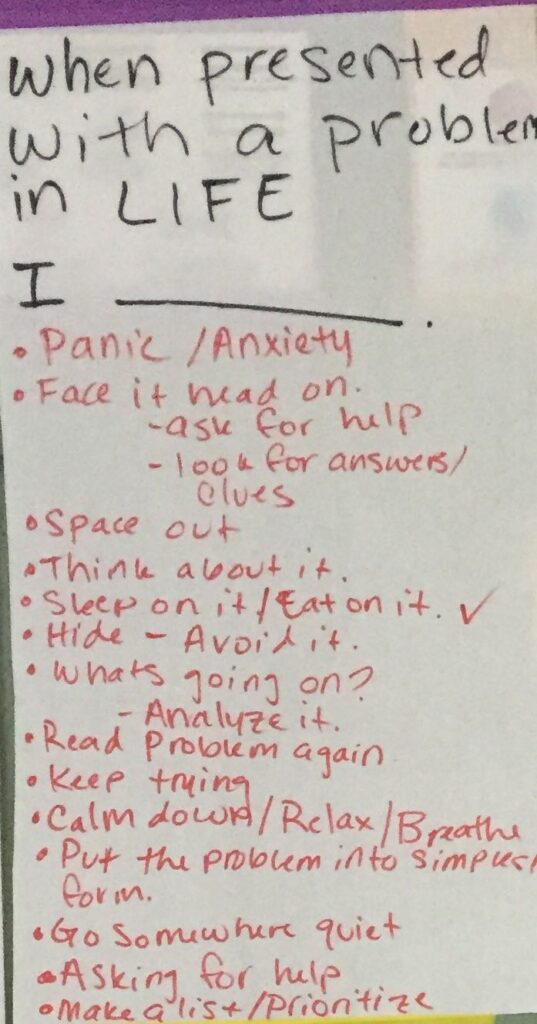 when presented
with a problem
in LIFE
I ________.
• Panic /Anxiety
• Face it head on.
-ask for help
- look for answers/
clues
• Space out
• Think about it.
• Sleep on it/Eat on it. ✓
• Hide - Avoid it.
• Whats going on?
- Analyze it.
• Read Problem again
• Keep trying
• Calm down/Relax/Breathe
• Put the problem into simplest
form.
• Go Somewhere quiet
• Asking for help
• Make a list/Prioritize